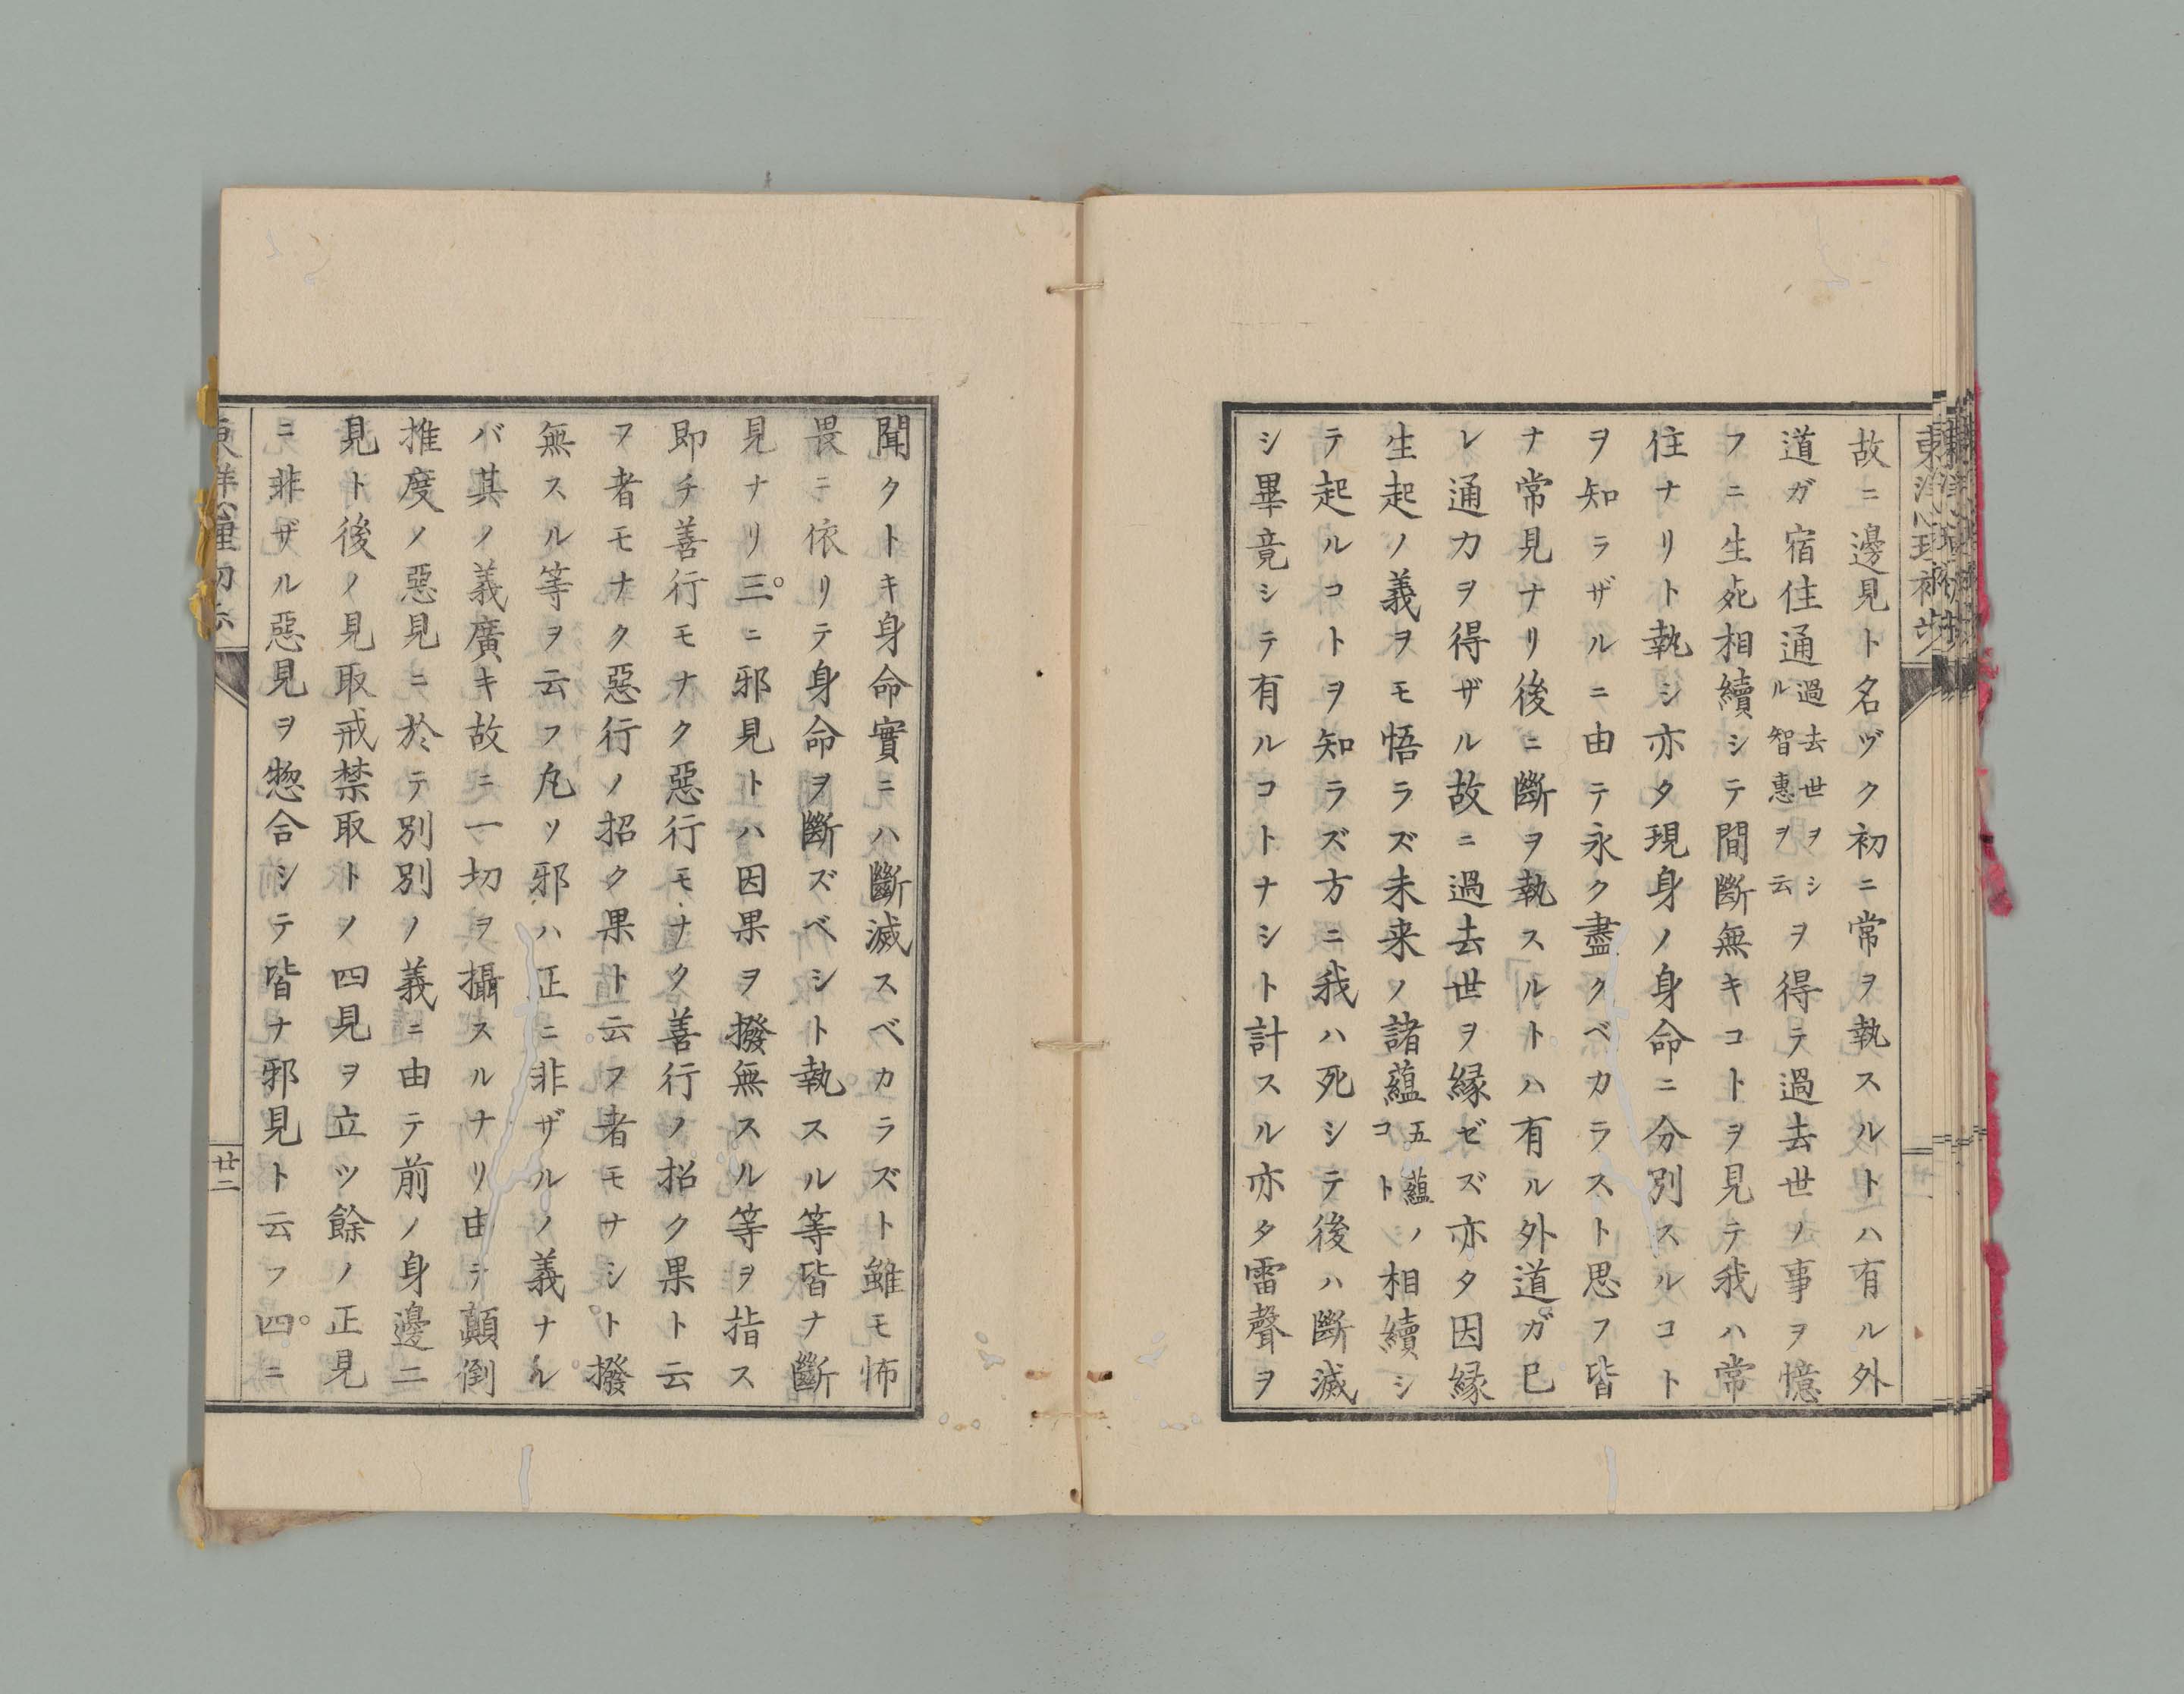 故ニ邊見ト名ヅク初ニ常ヲ執スルトハ有ル外
道ガ宿住通過去世ヲシル智惠ヲ云ヲ得テ過去世ノ事ヲ憶
フニ生死相續シテ間斷無キコトヲ見テ我ハ常
住ナリト執シ亦タ現身ノ身命ニ分別スルコト
ヲ知ラザルニ由テ永ク盡クベカラスト思フ皆
ナ常見ナリ後ニ斷ヲ執スルトハ有ル外道ガ巳
レ通力ヲ得ザル故ニ過去世ヲ縁ゼズ亦タ因縁
生起ノ義ヲモ悟ラズ未来ノ諸蘊五蘊コトノ相續シ
テ起ルコトヲ知ラズ方ニ我ハ死シテ後ハ斷滅
シ畢竟シテ有ルコトナシト計スル亦タ雷聲ヲ
聞クトキ身命實ニハ斷滅スベカラズト雖モ怖
畏ニ依リテ身命ヲ斷ズベシト執スル等皆ナ斷
見ナリ三。ニ邪見トハ因果ヲ撥無スル等ヲ指ス
即チ善行モナク惡行モナク善行ノ招ク果ト云
フ者モナク惡行ノ招ク果ト云フ者モナシト撥
無スル等ヲ云フ凡ソ邪ハ正ニ非ザルノ義ナル
バ其ノ義廣キ故ニ一切ヲ攝スルナリ由テ顛倒
推度ノ惡見ニ於テ別別ノ義ニ由テ前ノ身邊二
見ト後ノ見取戒禁取トノ四見ヲ立ツ餘ノ正見
ニ非ザル惡見ヲ惣合シテ皆ナ邪見ト云フ四。ニ
廿二